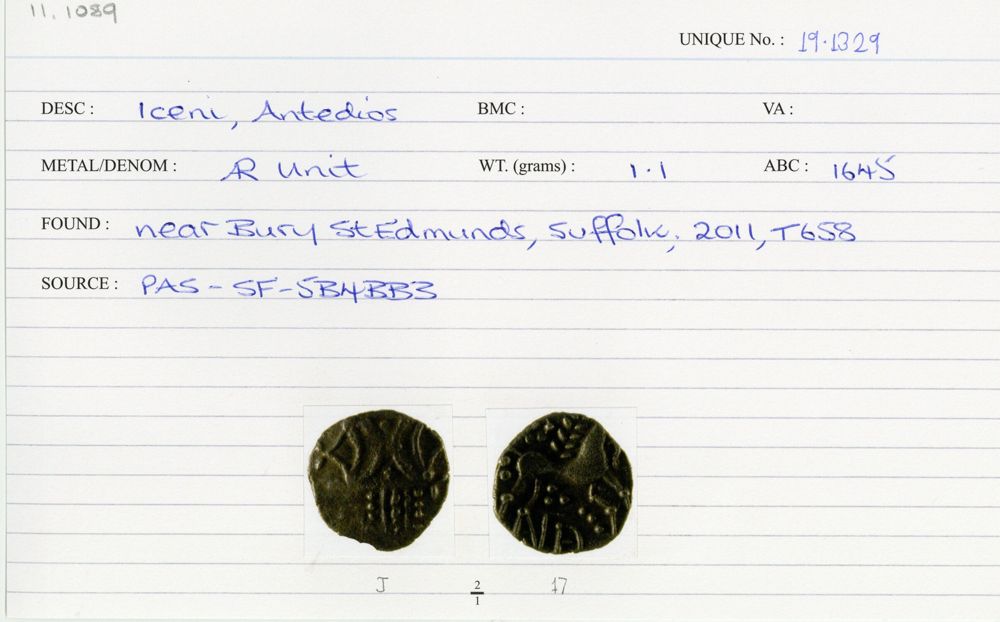 11.1089
UNIQUE No. : 19.1329
DESC : Iceni, Antedios BMC : VA :
METAL/DENOM : AR Unit WT. (grams) : 1.1 ABC : 1645
FOUND : near Bury St Edmunds, Suffolk, 2011, T658
SOURCE : PAS - SF - 5B4BB3
J 2/1 17